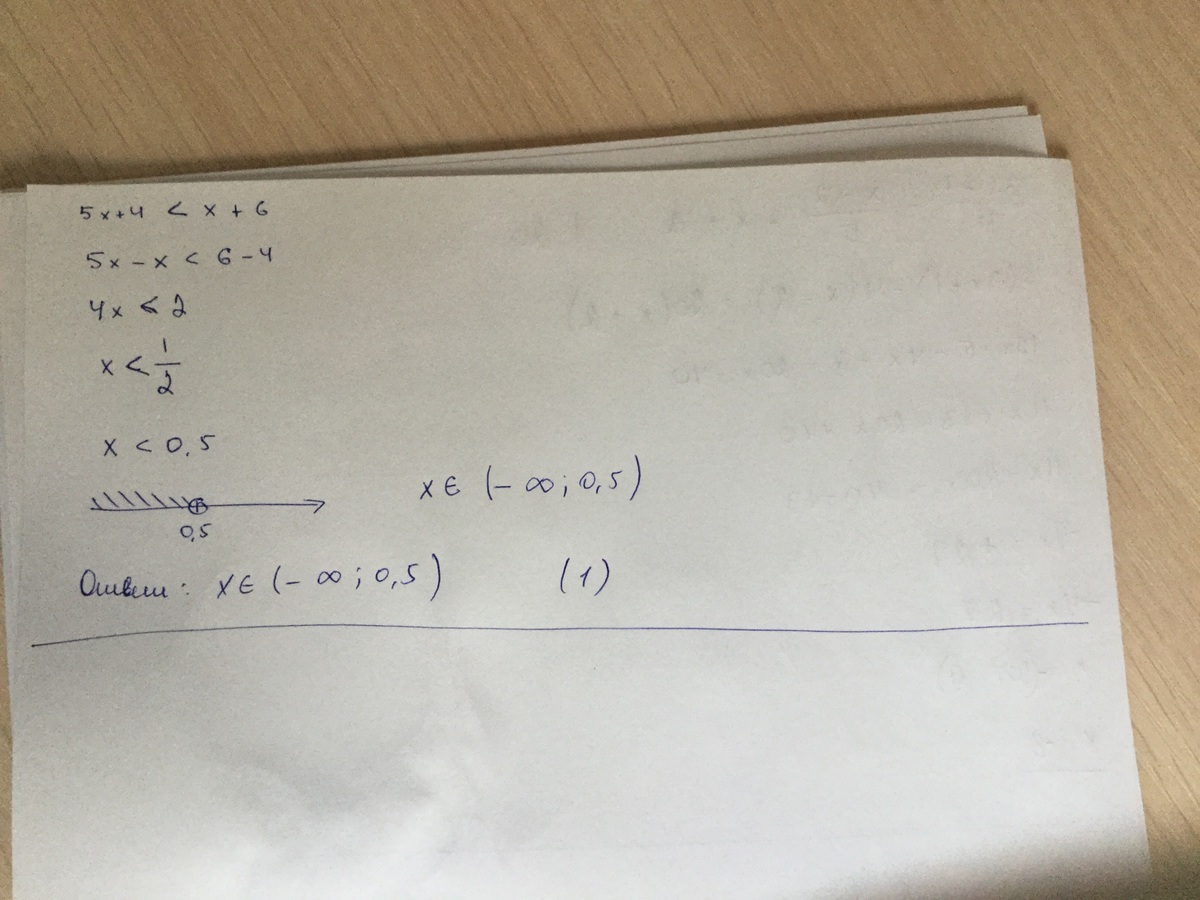 5x+4 < x + 6
5x – x < 6 – 4
4x < 2
x < 1/2
x < 0,5
0,5
x ∈ (– ∞ ; 0,5)
Ответ: x ∈ (– ∞ ; 0,5) (1)